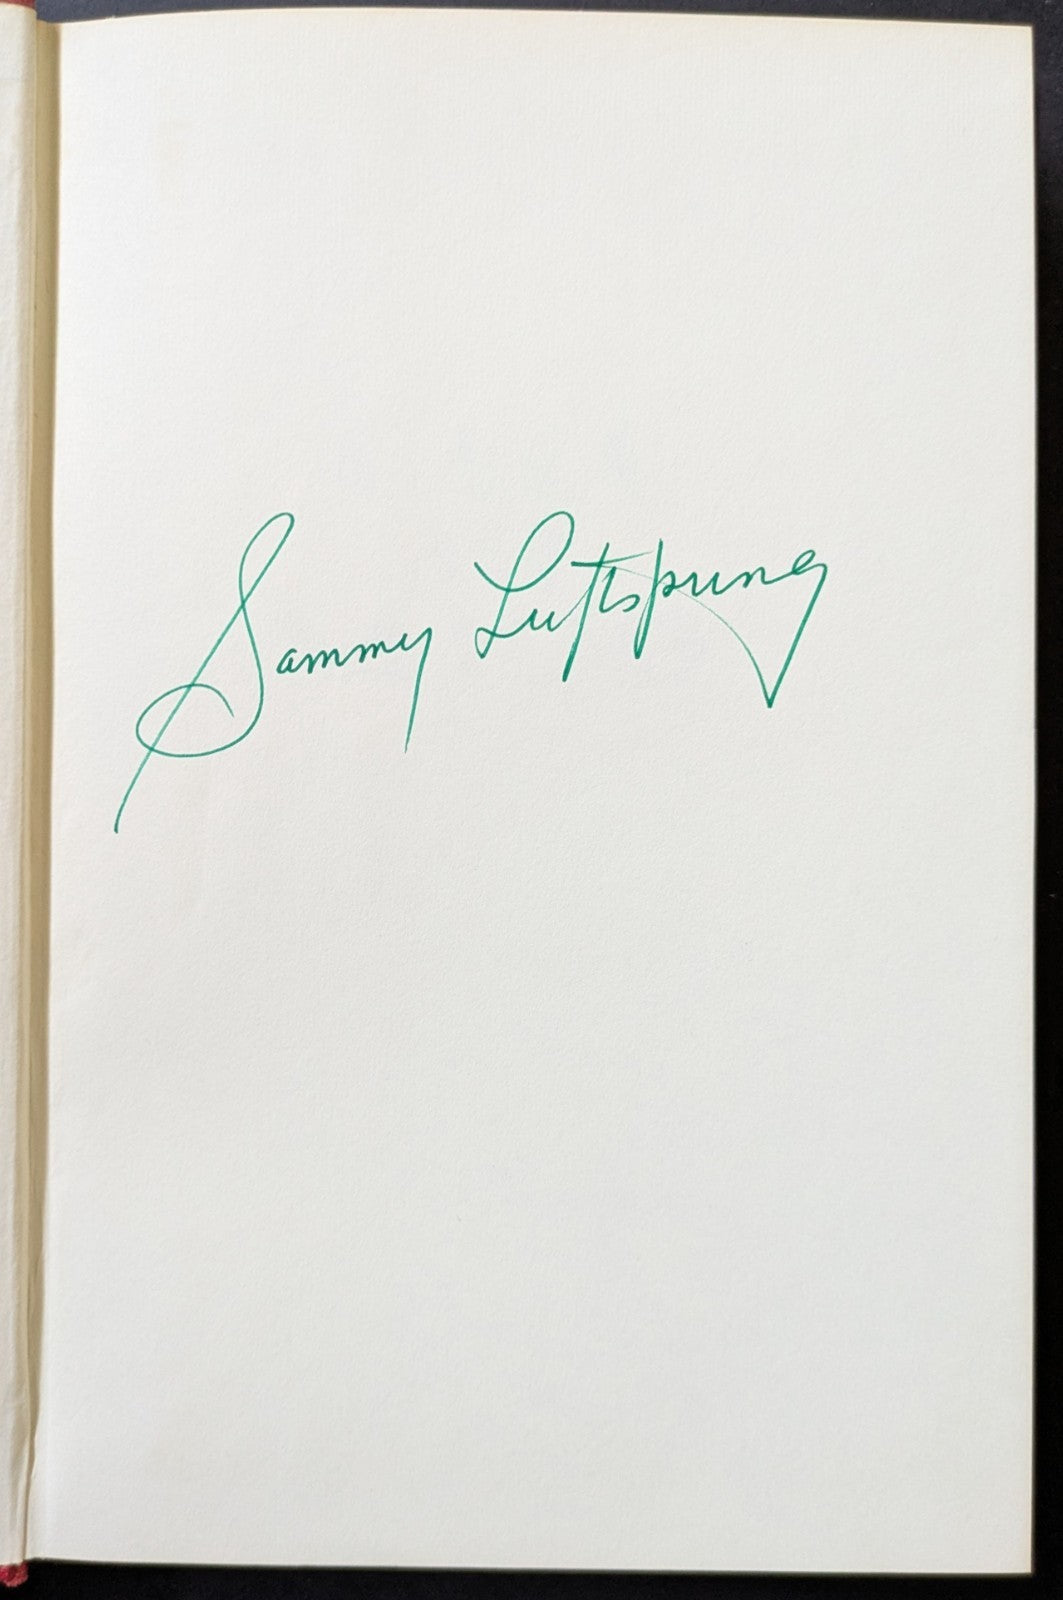 Sammy Luftspring